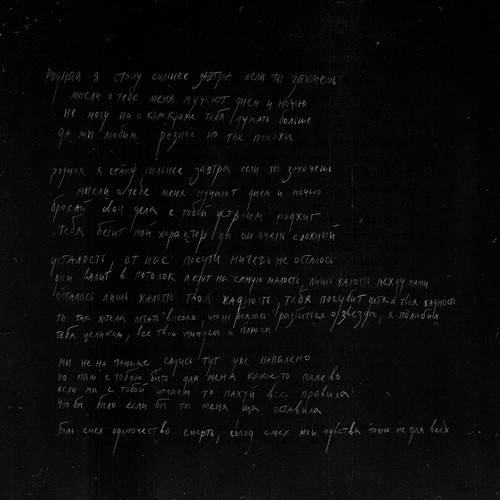 Родная я стану сильнее завтра если ты захочешь
мысли о тебе меня мучают днём и ночью
не могу ни о ком кроме тебя думать больше
да мы любим разное но так похожи
родная я стану сильнее завтра если ты захочешь
мысли о тебе меня мучают днем и ночью
бросай свои дела с тобой устроим поджиг
тебя бесит мой характер да он очень сложный
усталость, от нас почти ничего не осталось
дым валит в потолок летит на самую малость, лишь жалость между нами
осталась лишь жалость твоя жадность, тебя погубит детка твоя жадность
ты так хотела летать высоко что не боялась разбиться о звезды, я полюбил
тебя целиком, все твои минусы и плюсы
мы не на панике садись тут уже напалено
но пам с тобою быть для меня какое-то палево
если мы с тобой играем то нахуй все правила
что бы было если бы ты меня ща оставила
боль смех одиночество смерть, холод смех мои чувства точно не для всех